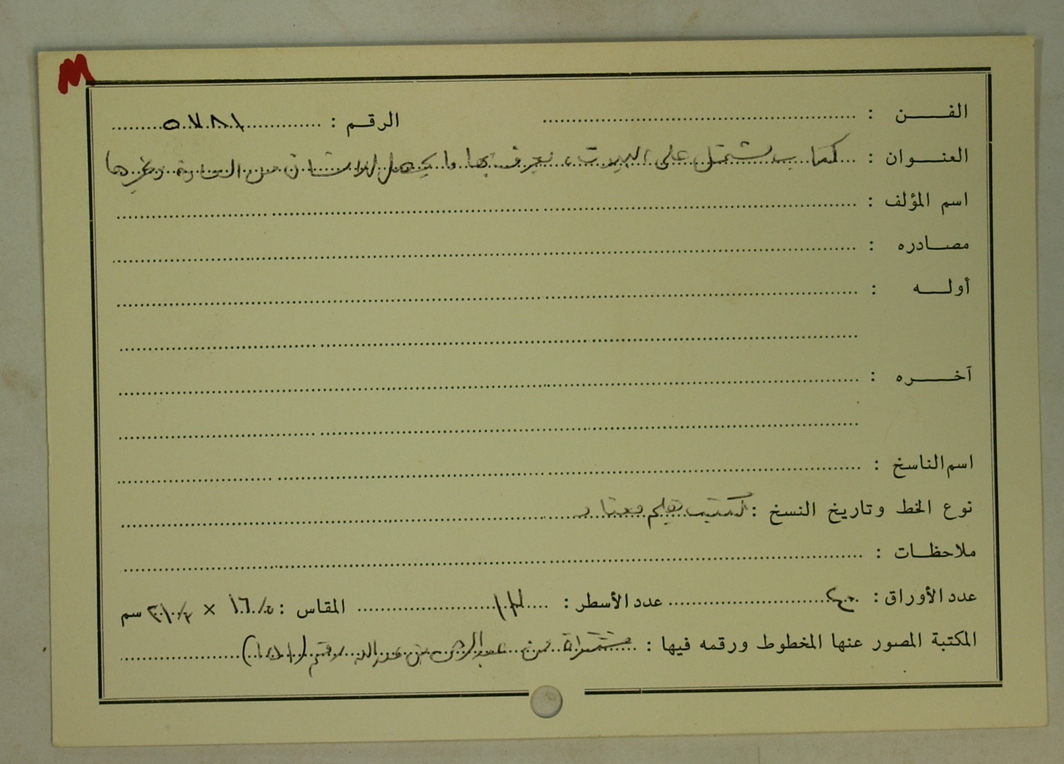 M
الفن : الرقم : ٥٧٨١
العنوان : كتاب يشتمل على البيوت، يعرف بها ما يحصل للإنسان من السعادة وغيرها
اسم المؤلف :
مصادره :
أوله :
آخره :
اسم الناسخ :
نوع الخط وتاريخ النسخ : كتب بقلم معتاد
ملاحظات :
عدد الأوراق : عدد الأسطر : المقاس : × سم
المكتبة المصور عنها المخطوط ورقمه فيها : مشتراة من عبد الرحمن